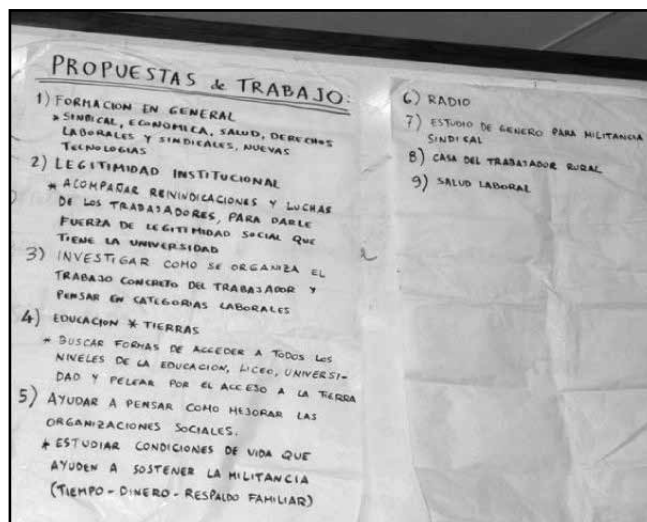 PROPUESTAS de TRABAJO:
1) FORMACION EN GENERAL
* SINDICAL, ECONOMICA, SALUD, DERECHOS
LABORALES Y SINDICALES, NUEVAS
TECNOLOGIAS
2) LEGITIMIDAD INSTITUCIONAL
* ACOMPAÑAR REIVINDICACIONES Y LUCHAS
DE LOS TRABAJADORES, PARA DARLE
FUERZA DE LEGITIMIDAD SOCIAL QUE
TIENE LA UNIVERSIDAD
3) INVESTIGAR COMO SE ORGANIZA EL
TRABAJO CONCRETO DEL TRABAJADOR Y
PENSAR EN CATEGORIAS LABORALES
4) EDUCACION * TIERRAS
* BUSCAR FORMAS DE ACCEDER A TODOS LOS
NIVELES DE LA EDUCACION, LICEO, UNIVERSI-
DAD Y PELEAR POR EL ACCESO A LA TIERRA
5) AYUDAR A PENSAR COMO MEJORAR LAS
ORGANIZACIONES SOCIALES.
* ESTUDIAR CONDICIONES DE VIDA QUE
AYUDEN A SOSTENER LA MILITANCIA
(TIEMPO - DINERO - RESPALDO FAMILIAR)
6) RADIO
7) ESTUDIO DE GENERO PARA MILITANCIA
SINDICAL
8) CASA DEL TRABAJADOR RURAL
9) SALUD LABORAL